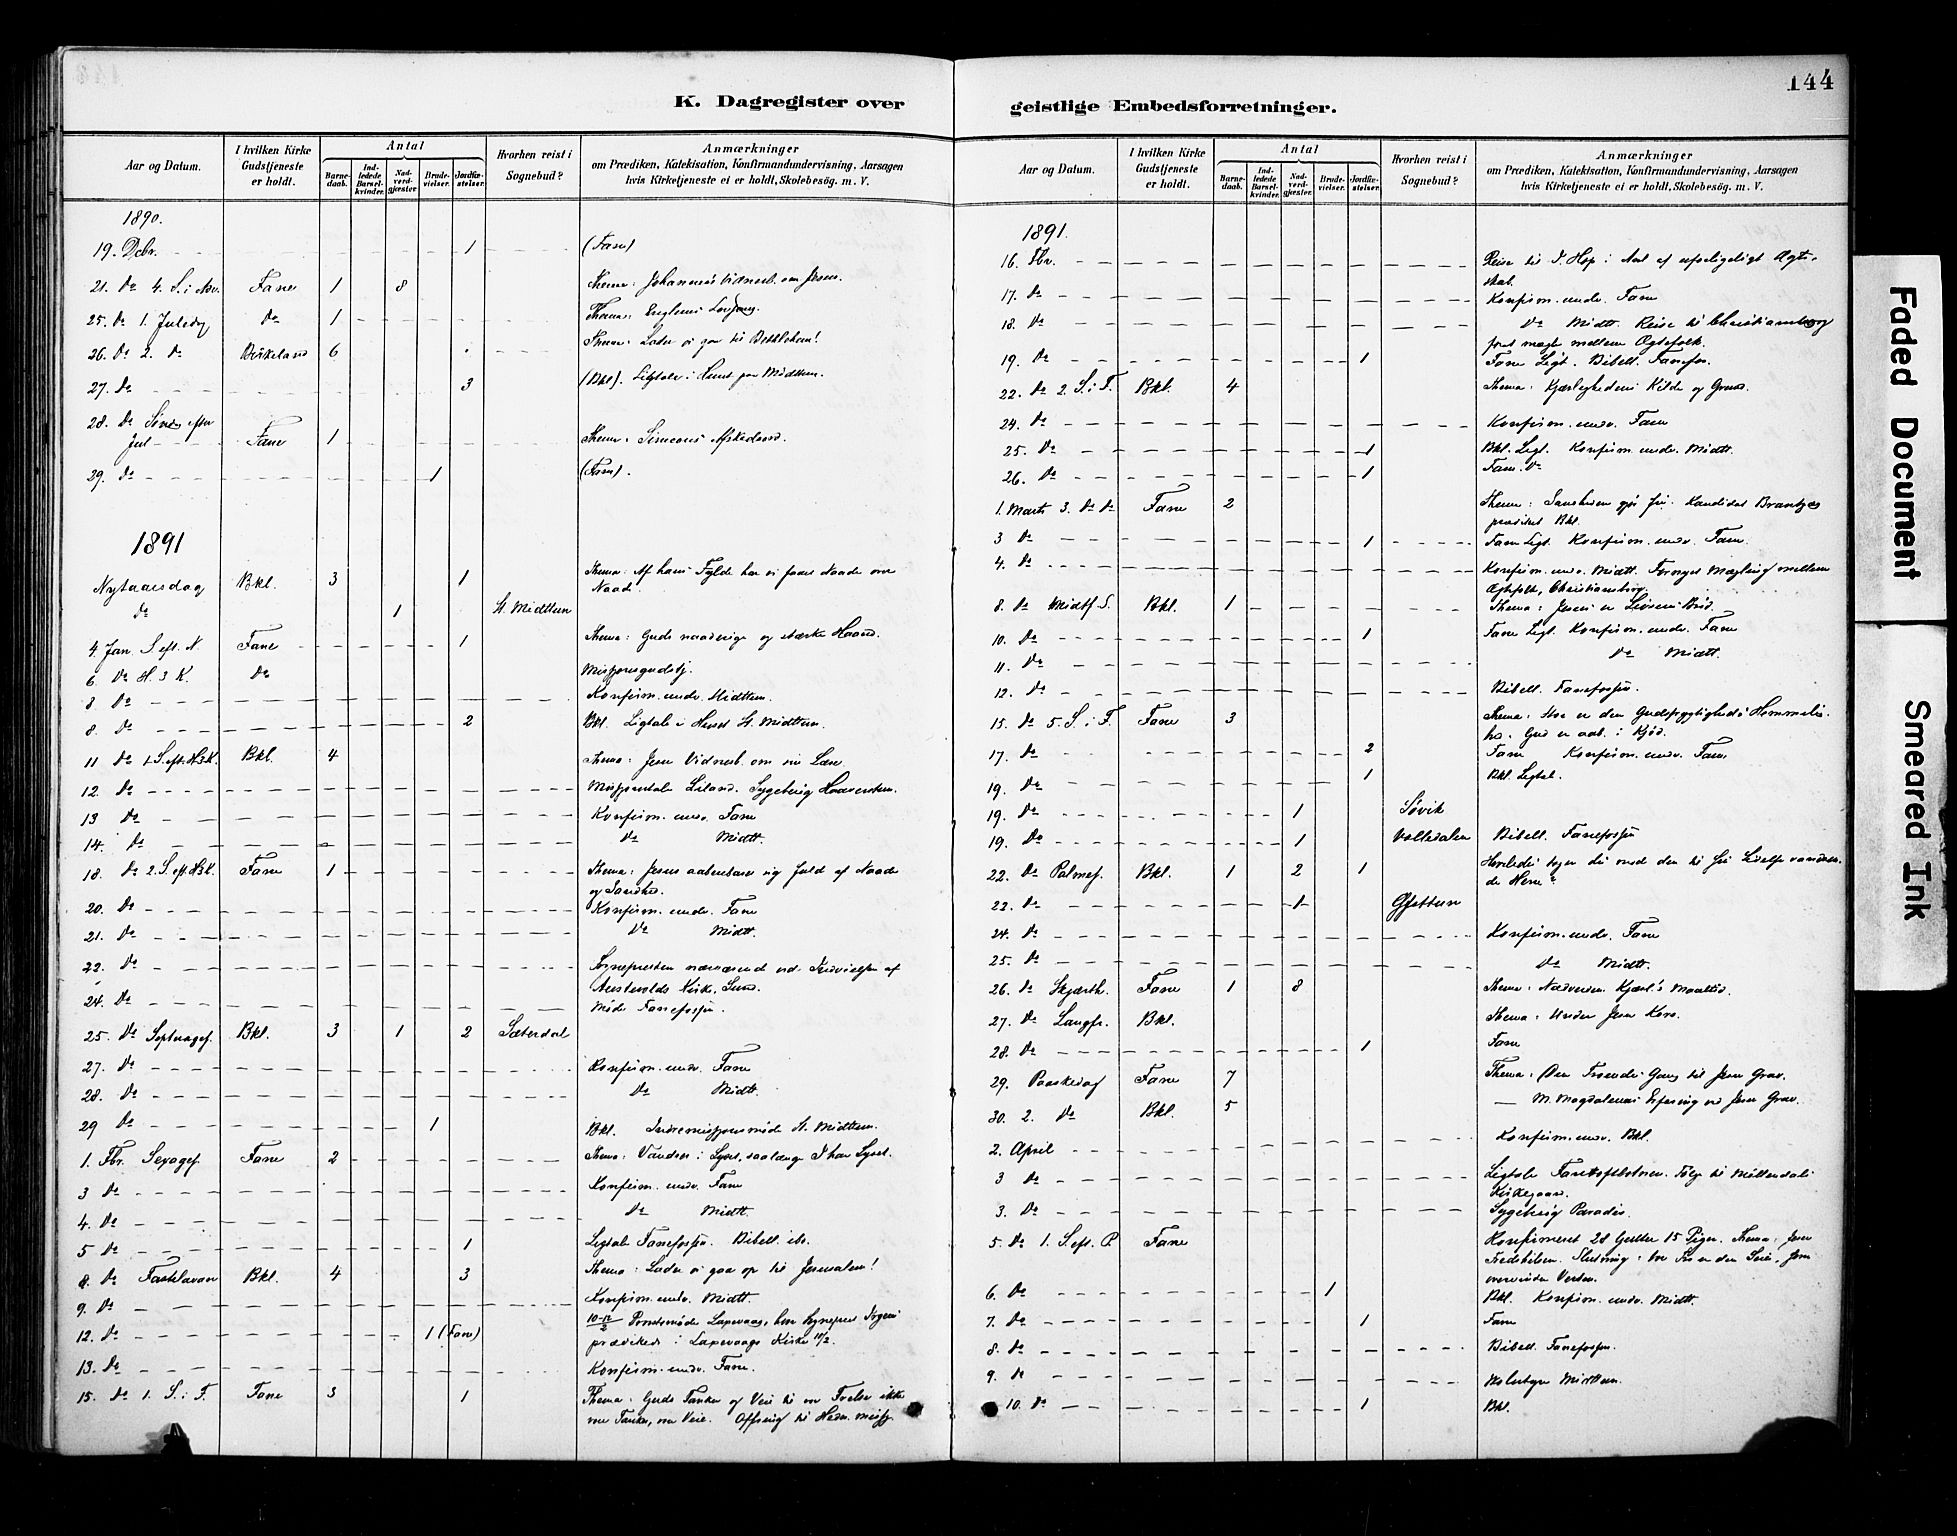 144
K. Dagregister over
geistlige Embedsforretninger.
Aar og Datum.
I hvilken Kirke Gudstjeneste er holdt.
Antal
Barne- daab.
Ind- ledede Barsel- kvinder.
Nad- verd- gjester.
Brude- vielser.
Jordfæ- stelser.
Hvorhen reist i Sognebud?
Anmærkninger
om Prædiken, Katekisation, Konfirmandundervisning, Aarsagen
hvis Kirketjeneste ei er holdt, Skolebesög. m. V.
1890.
19. Dcbr. 1 (Fane)
21. Do 4. S. i Adv. Fane 1 8 Thema: Johannes's Vidnesb. om Jesus.
25. Do 1. Juledag Do 1 Thema: Englenes Lovsang.
26. Do 2. Do Birkeland 6 Thema: Lader os gaa til Bethlehem!
27. Do 3 (Bkl). Ligtale i Huset paa Midttun.
28. Do Sønd. efter
Jul Fane 1 Thema: Simeons Afskedsord.
29. Do 1 (Fane).
1891
Nytaarsdag Bkl. 3 1 Thema: Af hans Fylde har vi faaet Naade over
Naade.
Do 1 St. Midttun
4. Jan. S. eft. N. Fane 1 Thema: Guds naaderige og stærke Haand.
6. Do H. 3 K. Do Missionsgudstj.
8 Do Konfirm. underv. Midttun.
8. Do 2 Bkl. Ligtale i Huset St. Midttun.
11 Do 1. S. eft. H3K. Bkl. 4 Thema: Jesu Vidnesb. om sin Lære
12. Do Missionstale Liland. Sygebesøg
13 Do Konfirm. underv. Fane
14. Do Do Midtt.
18. Do 2. S. eft. H3K. Fane 1 Thema: Jesus aabenbarer sig fuld af Naade
og Sandhed.
20. Do Konfirm. underv. Fane
21. Do Do Midtt.
22. Do Sognepresten nærværend ved Indvielsen af
Austevolds Kirke, Sund.
24. Do Møde Fanefossen.
25. Do Septuagef. Bkl. 3 1 2 Sæterdal
27. Do Konfirm. underv. Fane
28. Do Do Midtt.
29 Do 1 Bkl. Indremissionsmøde St. Midttun.
1. Fbr. Sexagef. Fane 2 Thema: Vandrer i Lyset, saalænge I har Lyset.
3 Do Konfirm. underv. Fane
4. Do Do Midtt.
5 Do 1 Ligtale Fanefossen. Bibell. ib.
8. Do Fastelavn Bkl. 4 3 Thema: Lader os gaa op til Jerusalem!
9. Do Konfirm. underv. Midtt.
12. Do 1 (Fane) 10-12/2 Præstemøde Laxevaag, hvor Sognepr.
prædikede i Laxevaags Kirke 11/2.
13. Do Konfirm. underv. Fane.
15. Do 1. S. i F. Fane 3 1 Thema: Guds Tanker og Veie til vor Frelse ikke
vore Tanker, vore Veie. Offring til Hedn. miss.
Aar og Datum.
I hvilken Kirke Gudstjeneste er holdt.
Antal
Barne- daab.
Ind- ledede Barsel- kvinder.
Nad- verd- gjester.
Brude- vielser.
Jordfæ- stelser.
Hvorhen reist i Sognebud?
Anmærkninger
om Prædiken, Katekisation, Konfirmandundervisning, Aarsagen
hvis Kirketjeneste ei er holdt, Skolebesög. m. V.
1891.
16. Fbr. Reise til Hop i Anl. af uforligeligt Ægte-
skab.
17. Do Konfirm. underv. Fane
18. Do Do Midtt. Reise til Christiansborg
for at mægle mellem Ægtefolk.
19. Do 1 Fane Ligt. Bibell. Fanefos.
22. Do 2. S. i F. Bkl. 4 Thema: Kjærlighedens Kilde og Grund.
24. Do Konfirm. underv. Fane
25. Do 1 Bkl. Ligt. Konfirm. underv. Midtt.
26. Do 1 Fane. Do
1. Marts 3. Do Do Fane 2 Thema: Sandheden gjør fri. Kandidat
prædiket Bkl.
3 Do 1 Fane Ligt. Konfirm. underv. Fane.
4. Do Konfirm. underv. Midtt. Fornyet Mægling mellem
Ægtefolk, Christiansborg.
8. Do Midtf. S. Bkl. 1 Thema: Jesus er Livsens Brød.
10. Do 1 Fane Ligt. Konfirm. underv. Fane
11. Do Do Midtt.
12. Do Bibell. Fanefossen.
15. Do 5. S. i F. Fane 3 Thema: Stor er den Gudfrygtigheds Hemmelig-
hed. Gud er aab. i Kjød.
17. Do 2 Fane Konfirm. underv. Fane
19. Do 1 Bkl. Ligtal.
19. Do 1 Søvik
19. Do 1 Vallesdalen Bibell. Fanefossen
22. Do Palmes. Bkl. 1 2 1 Hvorledes tager du mod den til sin Lidelse vandren-
de Herre?
22. Do 1
24. Do Konfirm. underv. Fane
25. Do Do Midtt.
26. Do Skjærth. Fane 1 8 Thema: Nadveren Kjærl.s Maaltid.
27. Do Langfr. Bkl. Thema: Under Jesu Kors.
28. Do 1 Fane
29. Paaskedag Fane 7 Thema: Den Troendes Gang til Jesu Grav.
30. 2. Do Bkl. 5 — M. Magdalenas Erfaring ved Jesu Grav.
2. April Konfirm. underv. Bkl.
3 Do Ligtale Følge til Møllendals
Kirkegaard.
3. Do Sygebesøg Paradis.
5. Do 1. S. eft. P. Fane Konfirmeret 28 Gutter 15 Piger. Thema: Jesu
Fredshilsen. Slutning: vor Tro er den Seier, som
overvinder Verden.
6. Do 1 Bkl. Konfirm. underv. Midtt.
7. Do 1 Fane
8. Do Bibell. Fanefossen.
9. Do Midttun.
10. Do 1 Bkl.
Faded Document
Smeared Ink